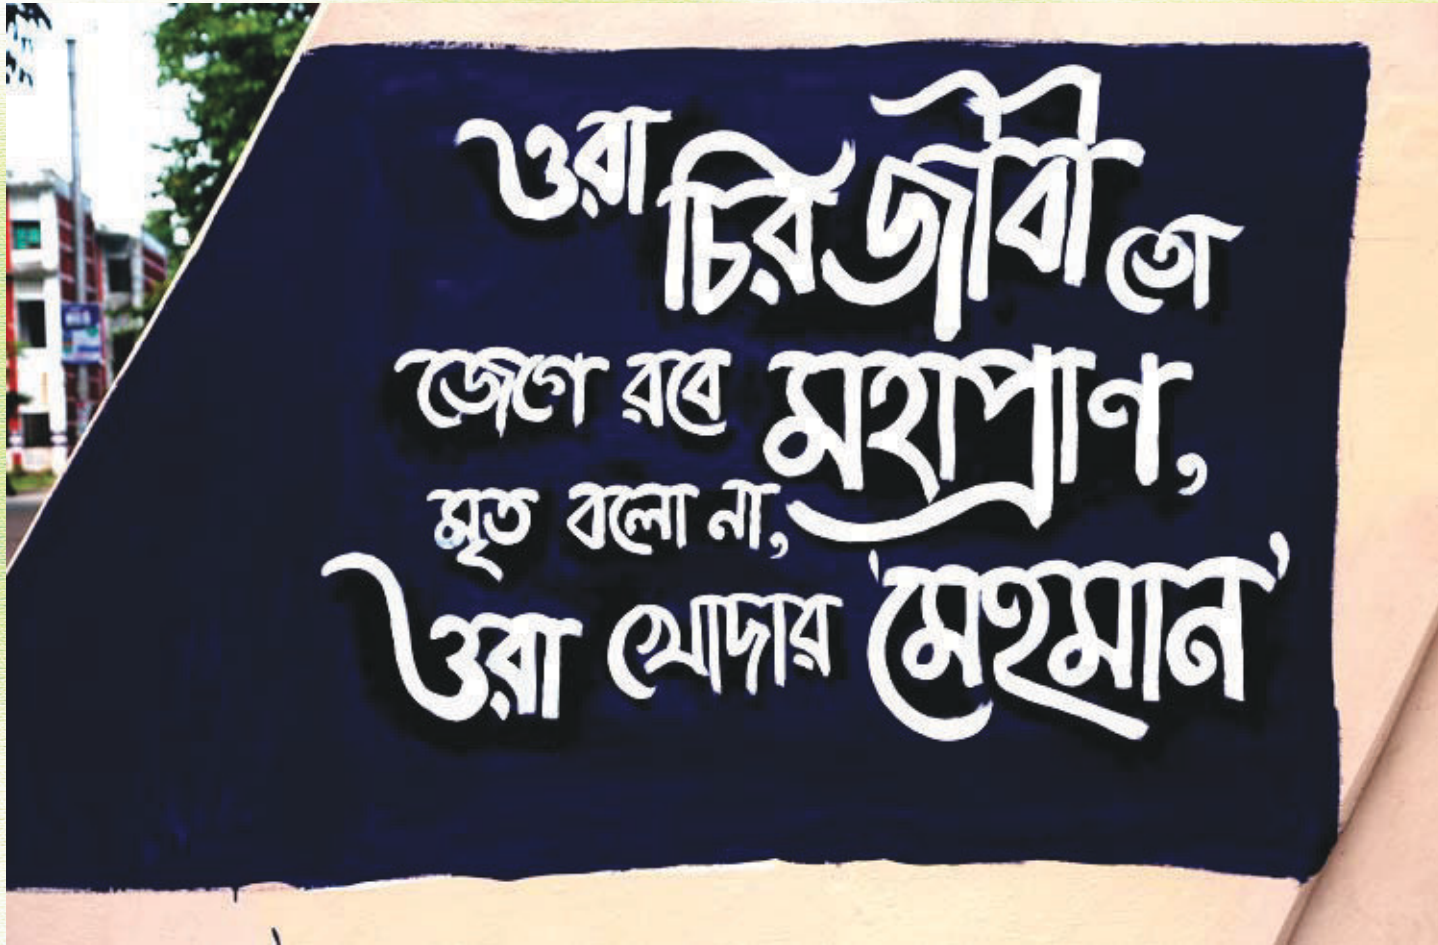 ওরা চিরজীবী তো
জেগে রবে মহাপ্রাণ,
মৃত বলো না,
ওরা খোদার 'মেহমান'